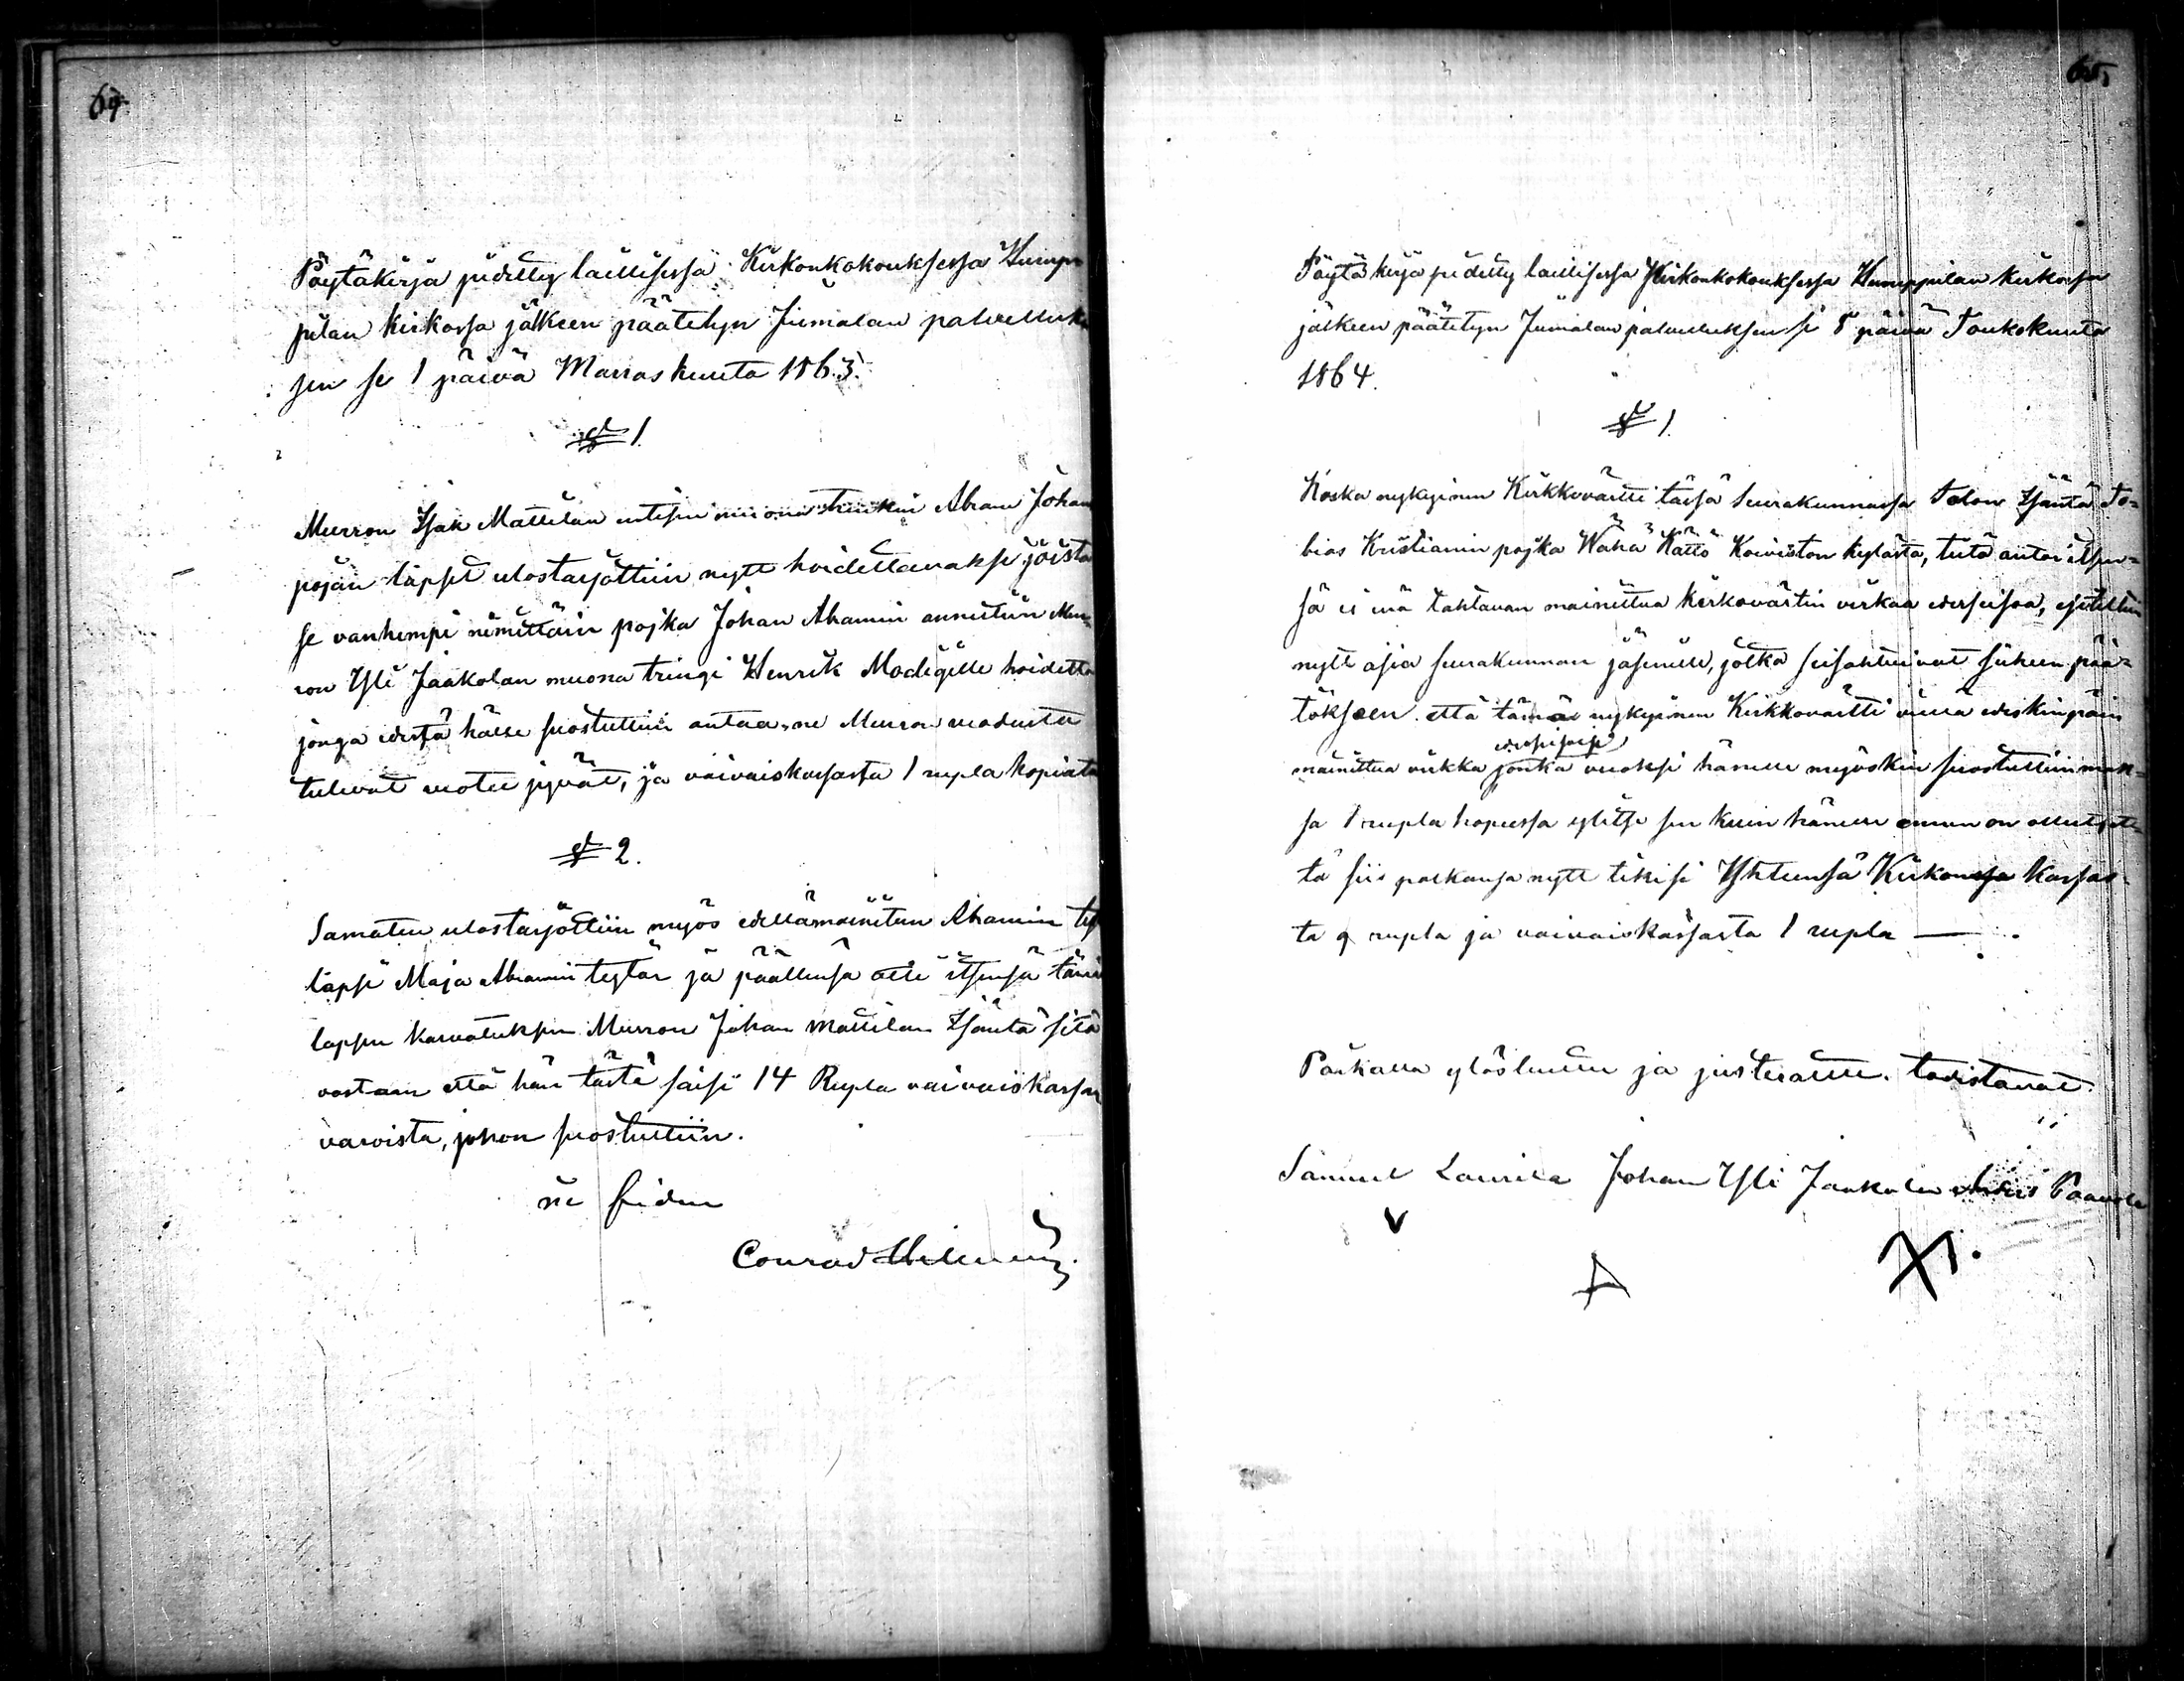 64
Pöytäkirja pidetty laillisessa Kirkonkokouksessa Hump
pilan kirkossa jälkeen päätetyn Jumalan palvelluk
sen se 1 päivä Marraskuuta 1863.
§ 1.
Murron Isak Mattilan entisen muona Abram Johan
pojan lapset ulostarjottiin nytt hoidettavaksi joista
se vanhempi nimittäin pojka Johan Abamin annettiin Mur
ron Yli Jaakolan muona tringi Henrik Modigille hoidetta
jonga edestä hälle suostuttiin antaa, ne Murron
tulevat jyvät, ja vaivaiskassasta 1 rupla hopiata
§ 2.
Samaten ulostarjottiin myös edellämainitun Abamin
lapsi Maja Abramin tytär ja päällensä otti itsensä tämän
lapsen kasvatuksen Murron Johan Mattilan Isäntä sitä
vastaan että hän tästä saisi 14 Rupla vaivaiskassan
varoista, johon suostuttiin.
in fidem
Conrad
65,
Pöytäkirja pidetty laillisessa Kirkonkokouksessa Humppilan kirkossa
jälkeen päätetyn Jumalan palveluksen se 8 päivä Toukokuuta
1864.
§ 1.
Koska nykyinen Kirkkovärtti tässä Seurakunnassa Talon Isäntä To-
bias Kristianin pojka Wähä Kättö Koiviston kylästä, tätä antoi itsen-
sä ei enä tahtavan mainittua kirkovärtin virkaa edesseisoa, esitettiin
nytt asia seurakunnan jäsenille, jotka seisahtuivat siihen pää-
tökseen että tämä nykyinen Kirkkovärtti vielä edeskinpäin
edesseisoisi
mainittua virkka jonka vuoksi hänelle myöskin suostuttiin mak-
sa 1 rupla hopeessa ylitse sen kuin hänelle ennen on ollut
tä siis palkansa nytt tekisi Yhteensä Kirkon kassas-
ta 9 rupla ja vaivaiskassasta 1 rupla —.
Paikalla ylösluettu ja justerattu. todistavat.
Samuel Laurila Johan Yli Jaakola Paavola